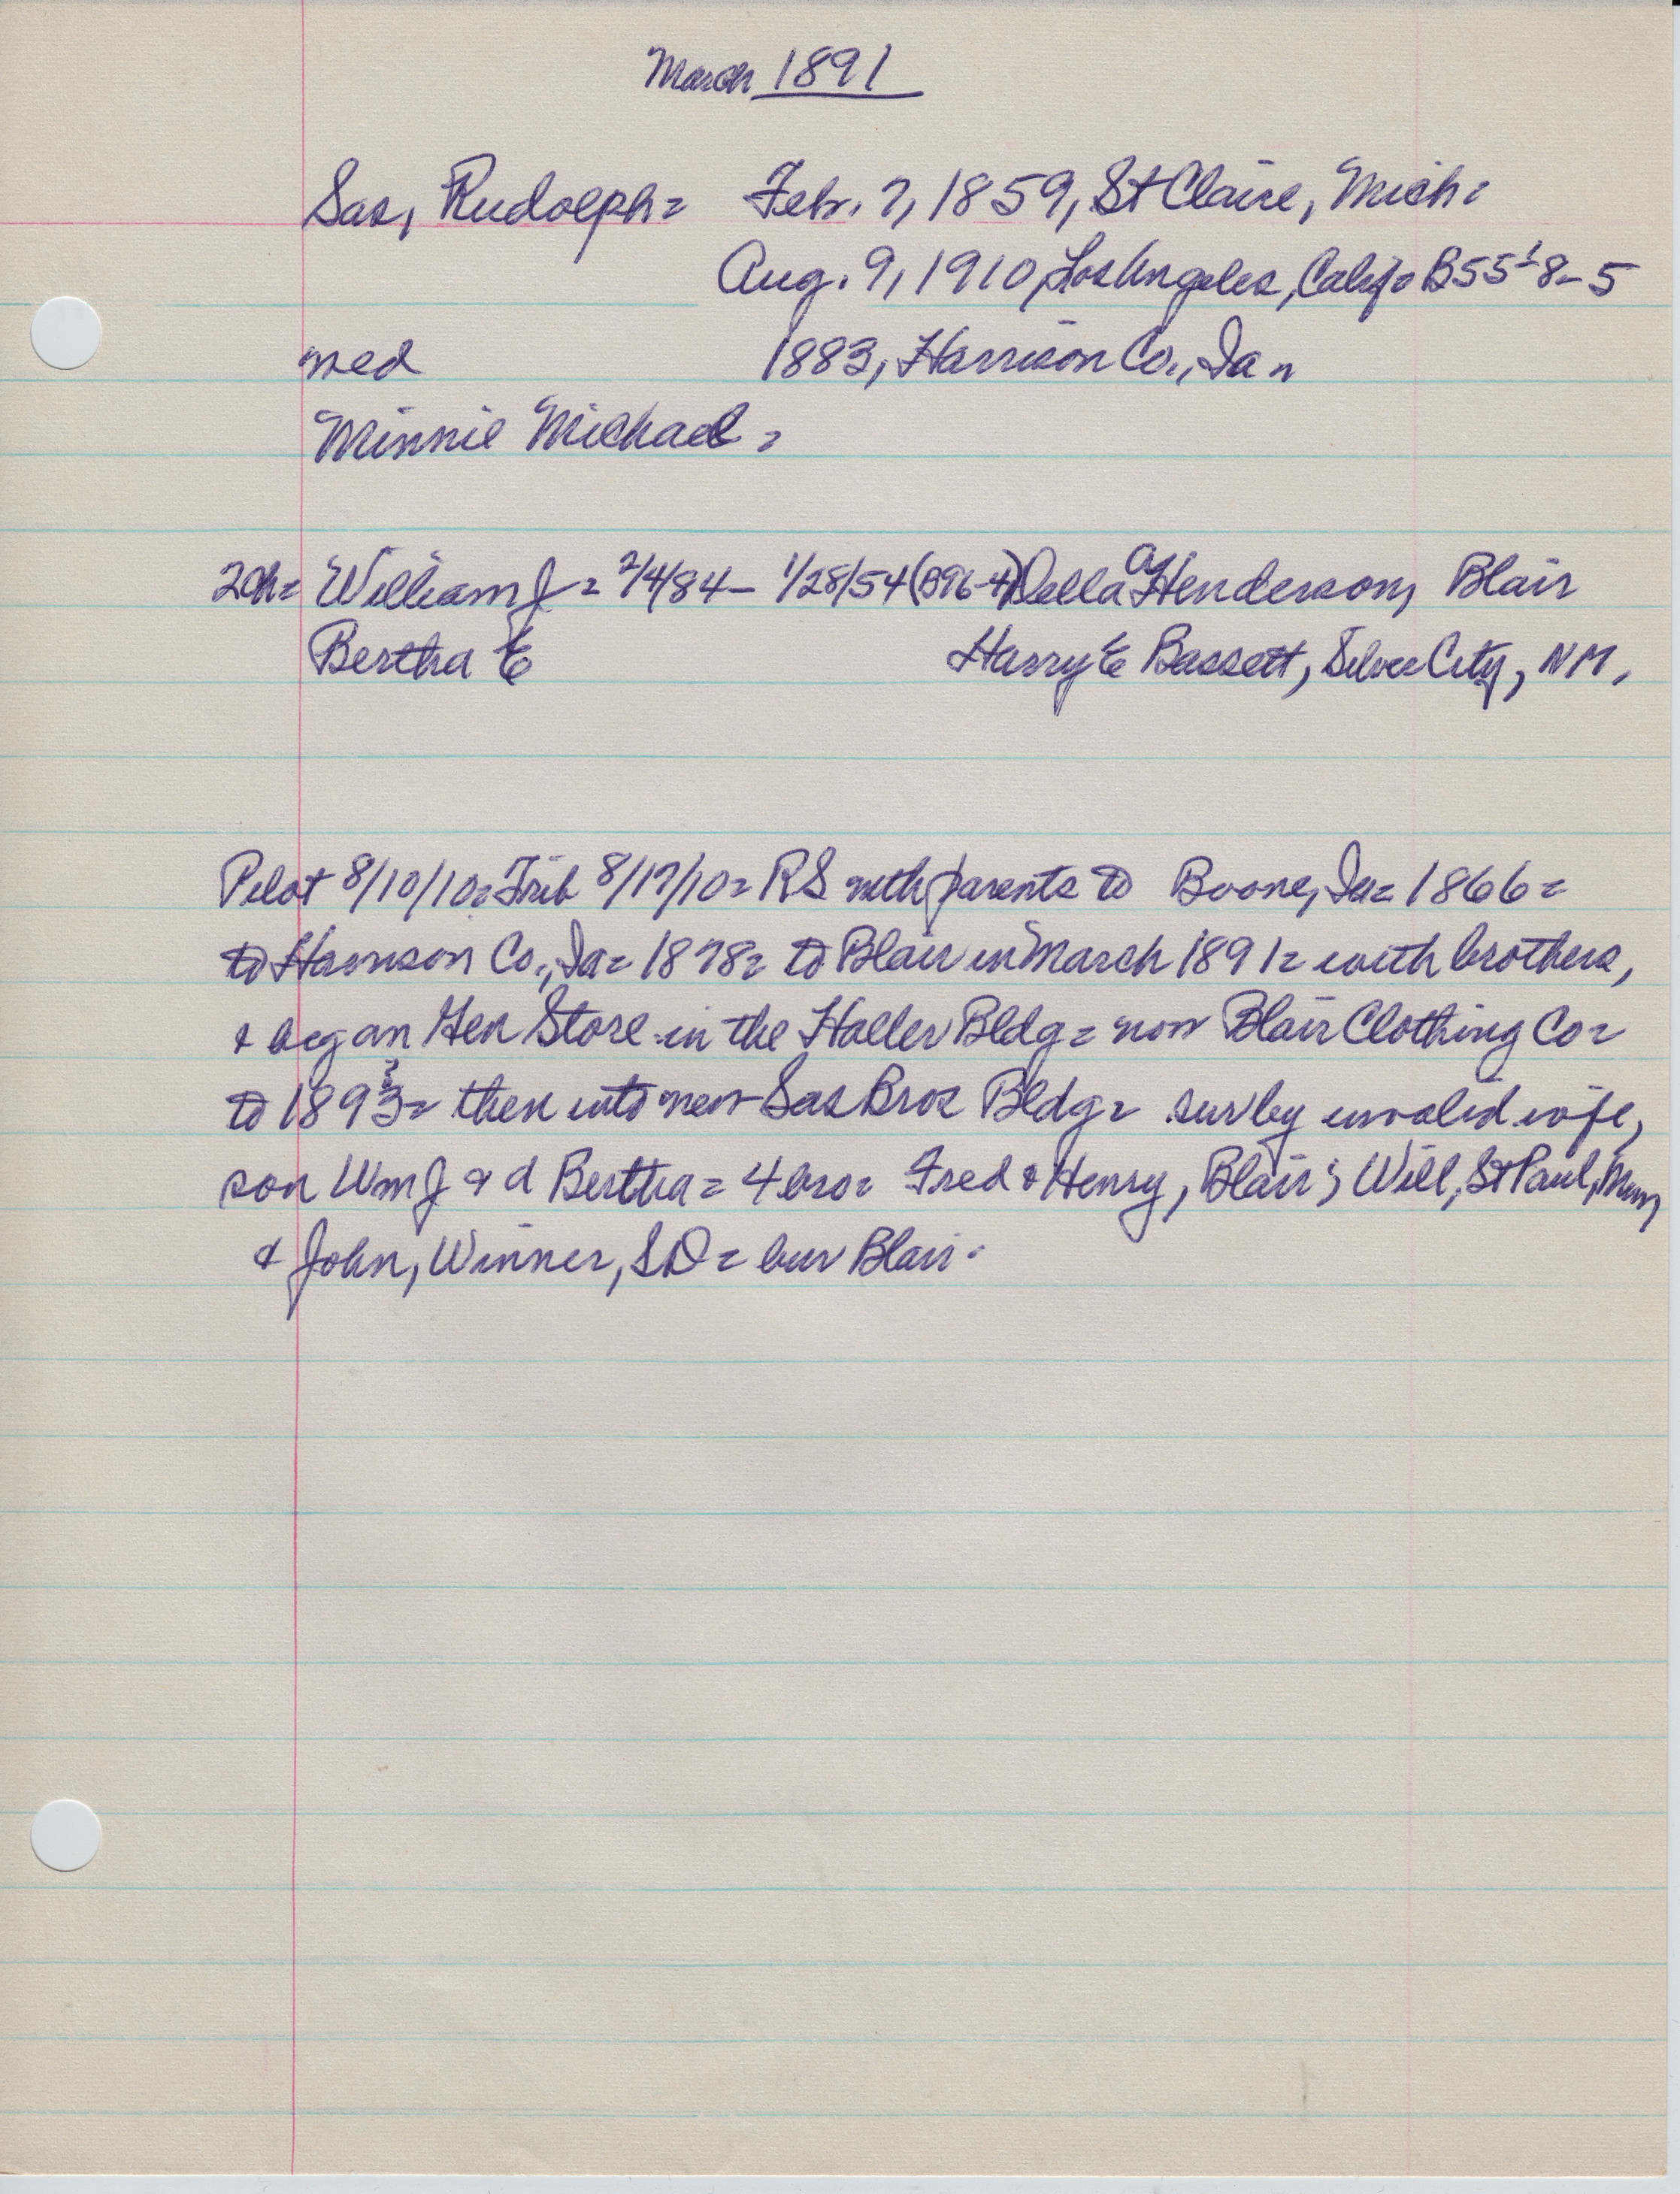 March 1891
Sas, Rudolph = Feb. 7, 1859, St Claire, Mich =
Aug. 9, 1910, Los Angeles, Calif = B55-8-5
med 1883, Harrison Co., Ia =
Minnie Michael =
2ch = William J = 2/4/84 - 1/28/54 (B96-4) Della A Henderson, Blair
Bertha E Harry E Bassett, Silver City, NM,
Pilot 8/10/10 = Trib 8/17/10 = RS with parents to Boone, Ia = 1866 =
to Harrison Co., Ia = 1878 = to Blair in March 1891 = with brothers,
& began Gen Store in the Haller Bldg = now Blair Clothing Co =
to 1893 = then into new Sas Bros Bldg = sur by invalid wife,
son Wm J & d Bertha = 4 bro = Fred & Henry, Blair; Will, St Paul, Minn,
& John, Winner, SD = bur Blair.